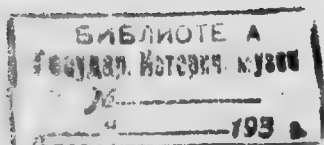 БИБЛИОТЕ А
Государ. Историч. музея
№
" 193 г.